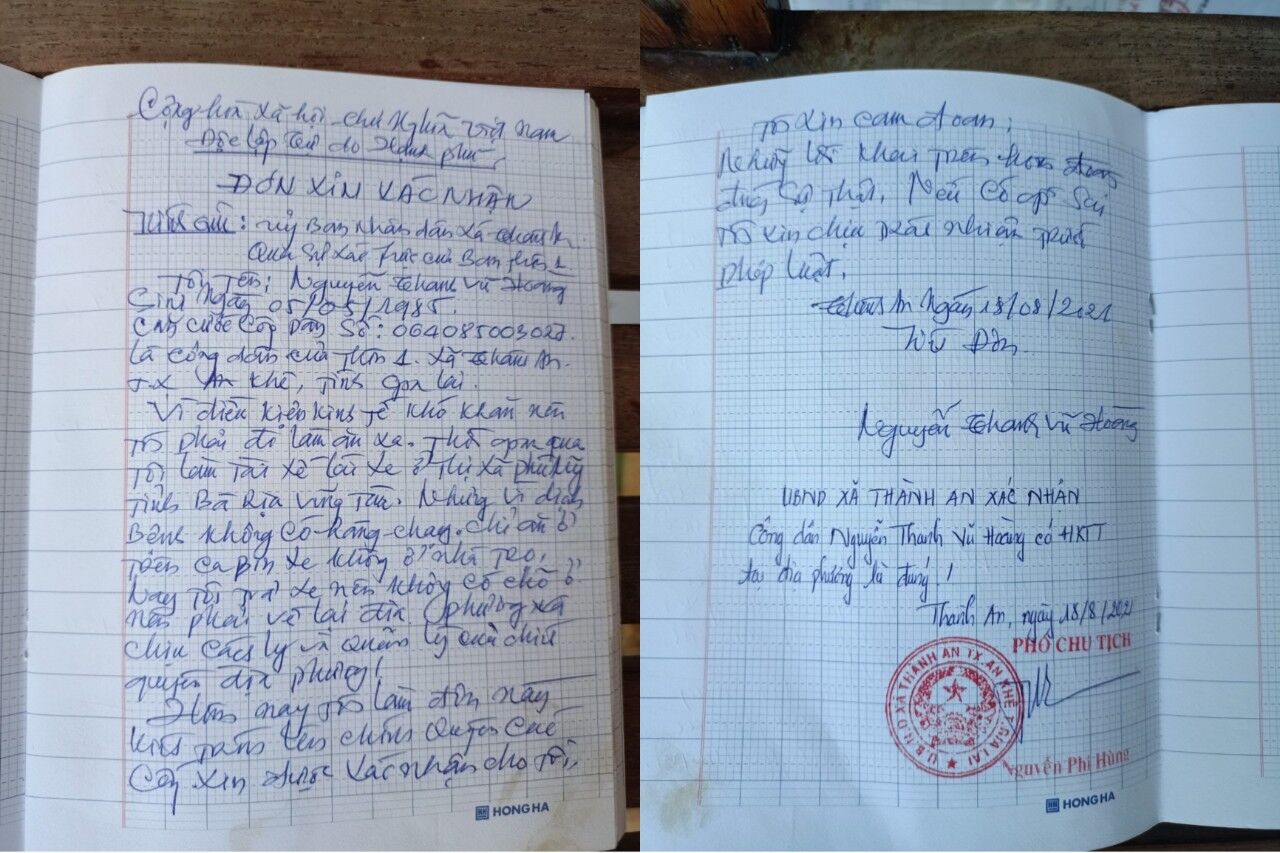 Cộng hòa xã hội chủ Nghĩa Việt Nam
Độc lập Tự do Hạnh phúc
ĐƠN XIN XÁC NHẬN
Kính gửi: Uỷ Ban Nhân dân xã Thành An.
Qua Sự xác thực của Ban thôn 1.
Tôi Tên: Nguyễn Thanh Vũ Hoàng
Sinh Ngày 05/05/1985.
Căn cước Công Dân Số: 064085003027.
là công dân của Thôn 1. Xã Thành An.
T.X An Khê, Tỉnh Gia lai.
Vì điều kiện kinh tế khó khăn nên
tôi phải đi làm ăn xa. Thời gian qua
Tôi làm Tài xế lái xe ở Thị xã phú Mỹ
Tỉnh Bà Rịa Vũng Tàu. Nhưng vì dịch
Bệnh không có hàng chạy. Chỉ ăn ở
trên cabin xe không ở nhà trọ,
Nay Tôi trả xe nên không có chỗ ở
nên phải về lại địa phường xã
chịu cách ly và quản lý của chính
quyền địa phương!
Hôm nay tôi làm đơn này
kính trình lên chính Quyền các
Cấp xin được xác nhận cho tôi,
HONG HA
Tôi Xin cam đoan,
Những lời khai trên hoàn toàn
đúng sự thật, Nếu có gì sai
tôi xin chịu trách nhiệm trước
pháp luật.
Thành An Ngày 18/08/2021
Viết Đơn
Nguyễn Thanh Vũ Hoàng
UBND XÃ THÀNH AN XÁC NHẬN
Công dân Nguyễn Thanh Vũ Hoàng có HKTT
tại địa phương là đúng!
Thành An, ngày 18/8/2021
PHÓ CHỦ TỊCH
U.B.N.D XÃ THÀNH AN TX AN KHÊ T. GIA LAI
Nguyễn Phi Hùng
HONG HA